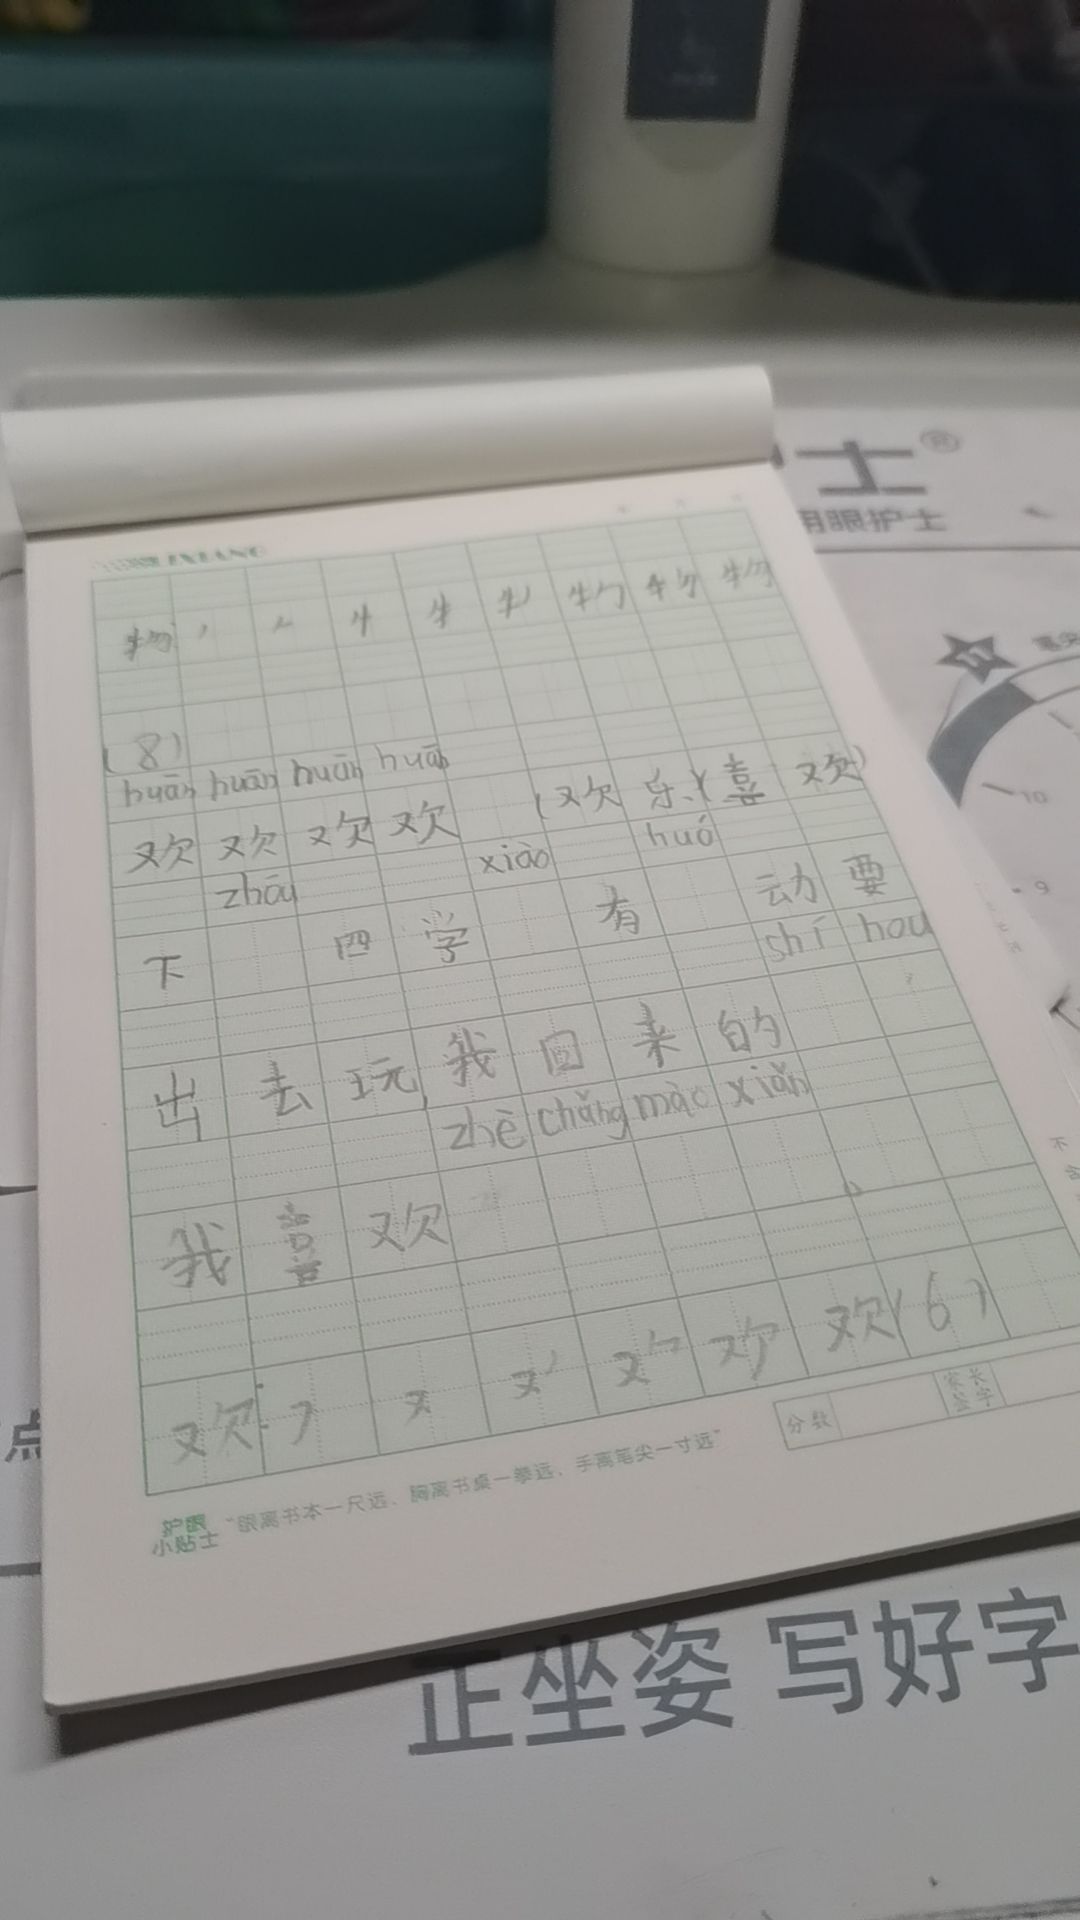 士®
明眼护士
物 丿 𠂉 牛 牛 牜丿 牜勹 物 物
(8)
huān huān huān huān
欢 欢 欢 欢 (欢 乐)(喜 欢)
zhōu xiào huó
下 四 学 有 动 要
shí hou
出 去 玩, 我 回 来 的
zhē chǎng mào xiǎn
我 喜 欢 。
欢 フ 又 欢 欢(6)
分数
家长签字
护眼小贴士 “眼离书本一尺远、胸离书桌一拳远、手离笔尖一寸远”
10
9
点
正坐姿 写好字